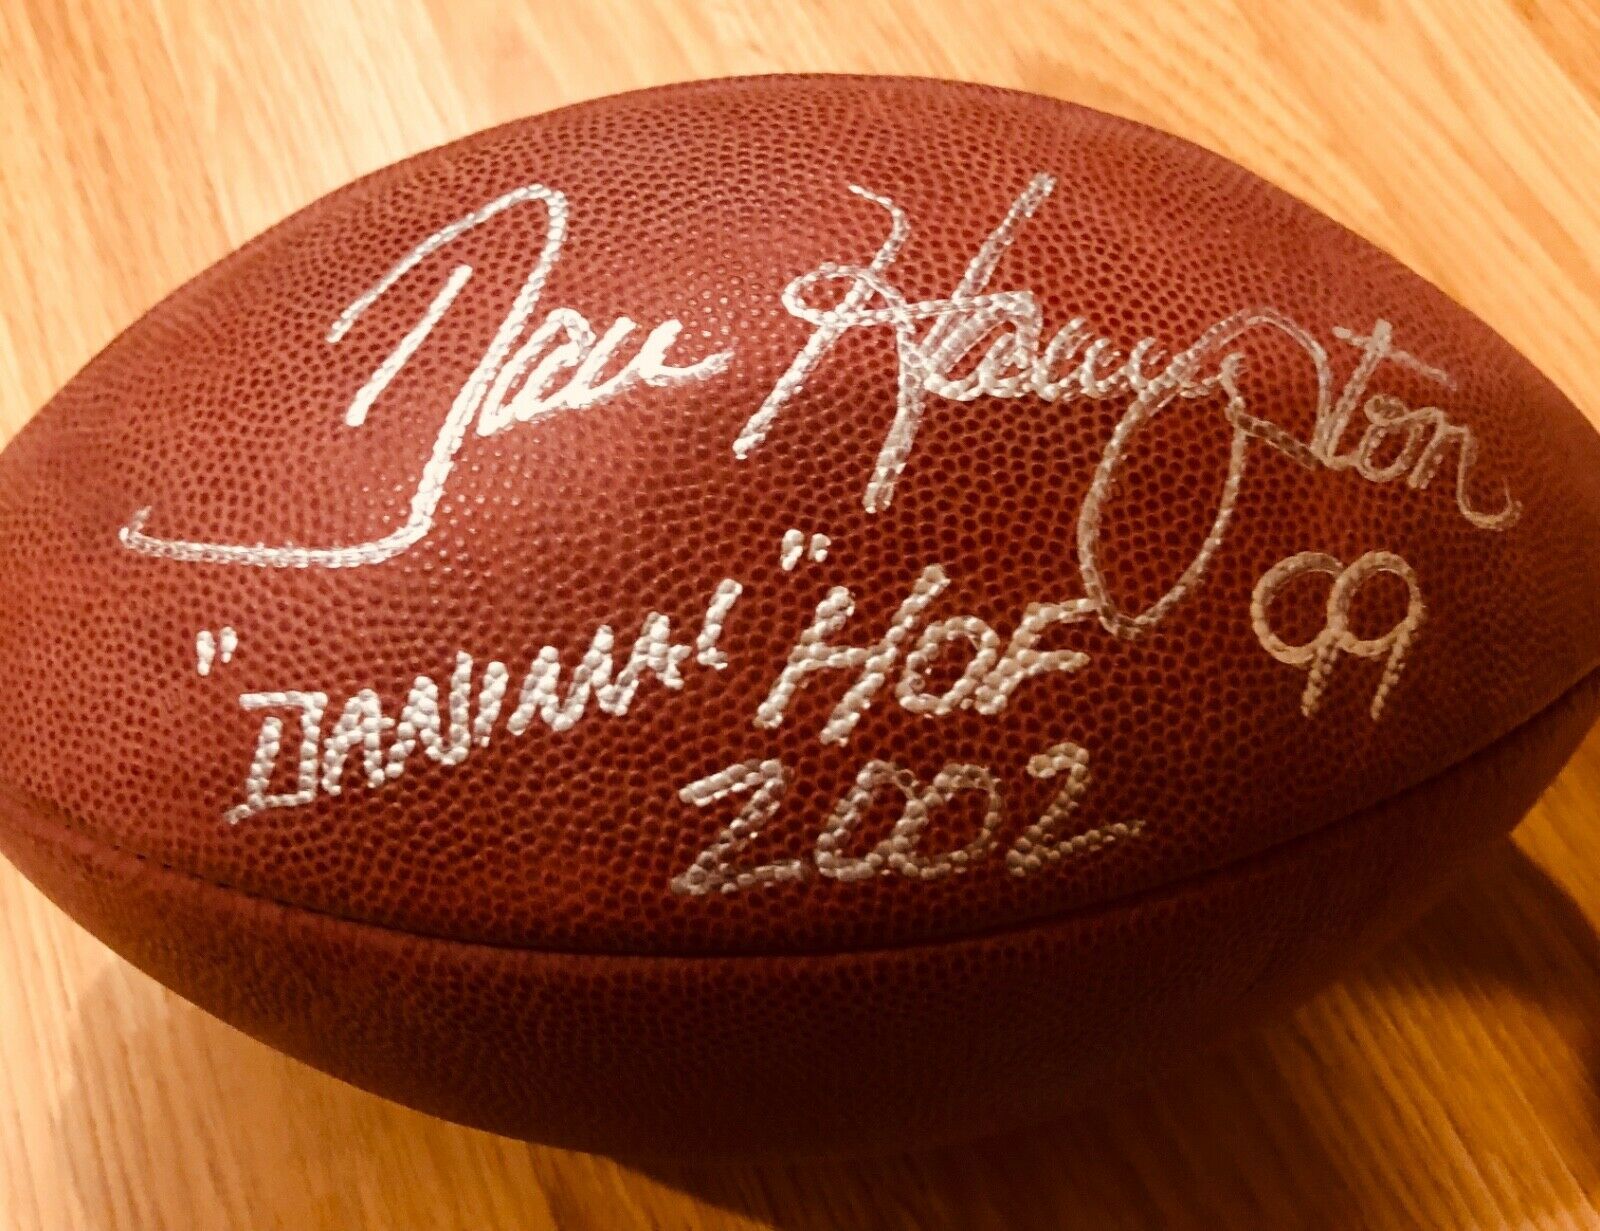 Dan Hampton
99
"DANIMAL" HOF
2002